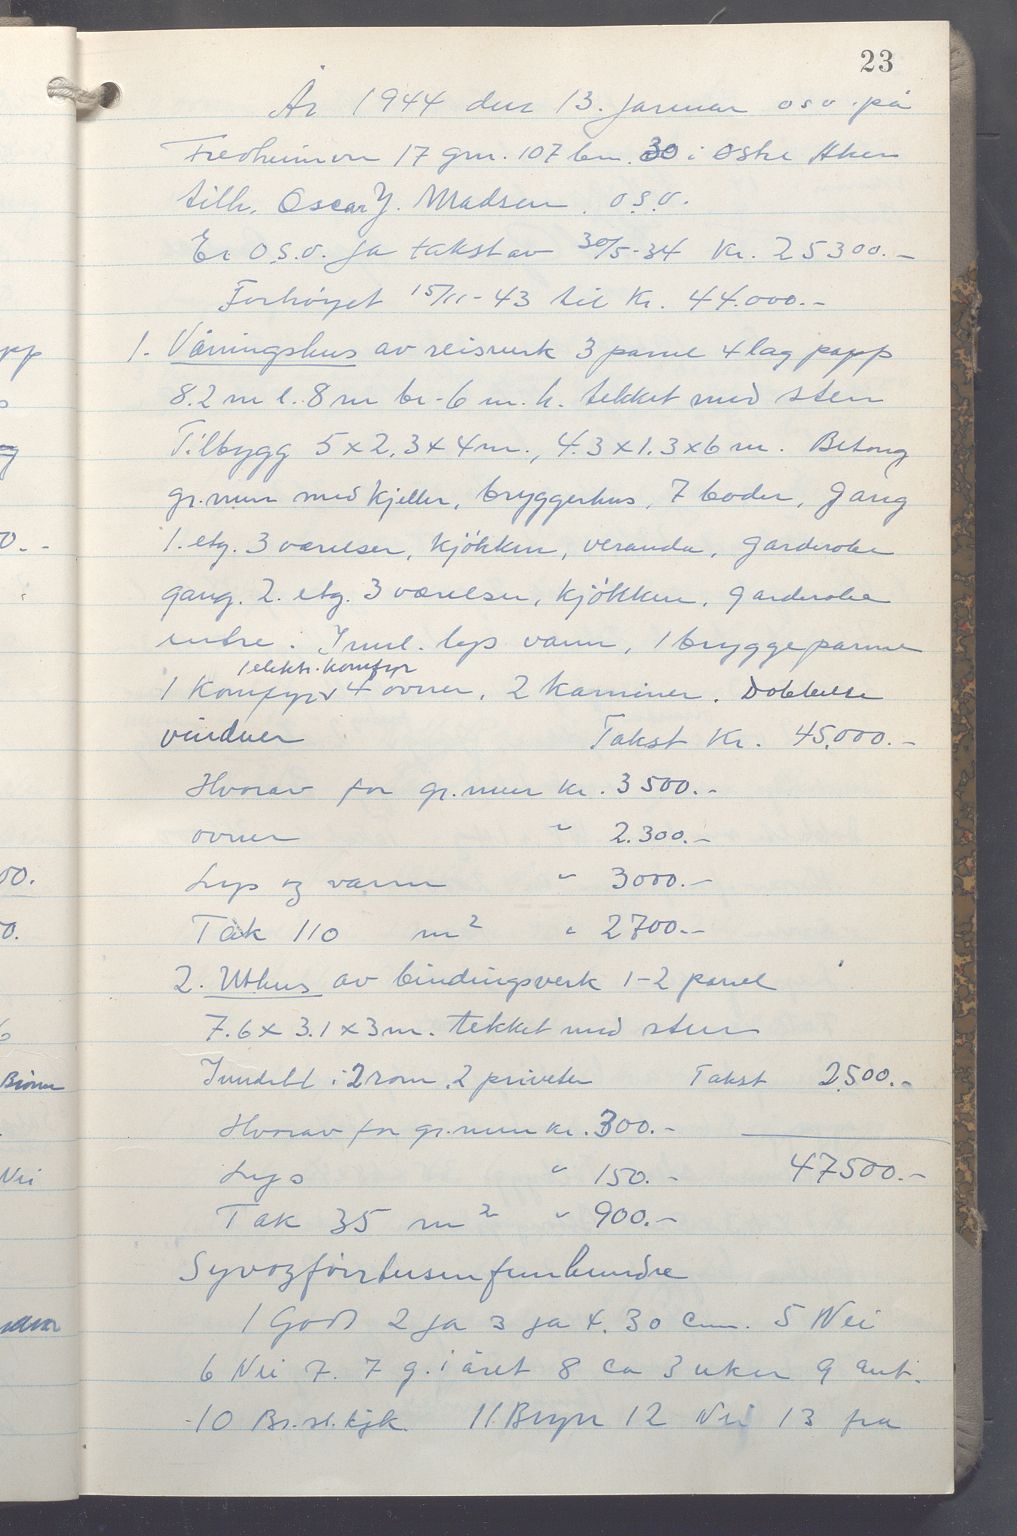 23
År 1944 den 13. Januar o s v. på
Fredheimvn 17 gnr. 107 bnr. 30 i Østre Aker
tilh. Oscar J. Madsen. o.s.v.
Er o.s.v. Ja takst av 30/5-34 Kr. 25300.-
Forhöyet 15/11-43 til Kr. 44.000.-
1. Våningshus av reisverk 3 panel 4 lag papp
8.2 m l. 8 m br - 6 m. h. tekket med sten
Tilbygg 5 x 2,3 x 4 m., 4.3 x 1.3 x 6 m. Betong
gr.mur med kjeller, bryggerhus, 7 boder, gang
1. etg. 3 værelser, kjökken, veranda, garderobe
gang. 2. etg. 3 værelser, kjökken, garderobe
entre. Innl. lys vann, 1 bryggepanne
1 elektr. komfyr
1 Komfyr v 4 ovner, 2 kaminer. Dobbelte
vinduer Takst Kr. 45.000.-
Hvorav for gr.mur kr. 3500.-
ovner " 2.300.-
Lys og vann " 3000.-
Tak 110 m² " 2700.-
2. Uthus av bindingsverk 1-2 panel
7.6 x 3.1 x 3 m. tekket med sten
Inndelt i 2 rom, 2 priveter Takst 2500.-
Hvorav for gr.mur kr. 300.-
Lys " 150.- 47500.-
Tak 35 m² " 900.-
Syvogförrtusenfemhundre
1 God 2 ja 3 ja 4. 30 cm. 5 Nei
6 Nei 7. 7 g. i året 8 ca 3 uker 9 aut.
10 Br.sl.kjk. 11. Bryn 12 Nei 13 fra
pp
0.-
00.
0.
6
Nei